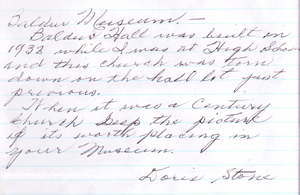 Baldur Museum. —
Baldur Hall was built in
1932 while I was at High School
and this church was torn
down on the hall lot just
previous.
When it was a Century
Church Keep the picture
if its worth placing in
your Museum.
Doris Stone